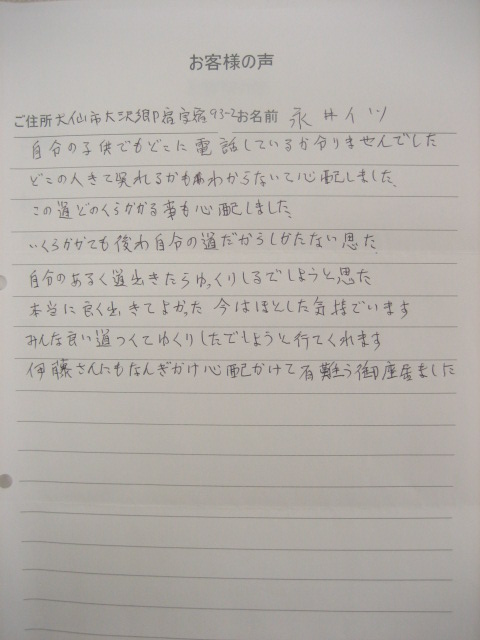 お客様の声
ご住所 大仙市大沢郷宿字宿93-2 お名前 永井イツ
自分の子供でもどこに電話しているか分りませんでした
どこの人きて呉れるかもわからないで心配しました
この道どのくらかかる事も心配しました
いくらかかても後わ自分の道だからしかたない思た
自分のあるく道出きたらゆっくりしるでしようと思た
本当に良く出きてよかった 今はほとした気持でいます
みんな良い道つくてゆくりしたでしようと行てくれます
伊藤さんにもなんぎかけ心配かけて有難う御座居ました